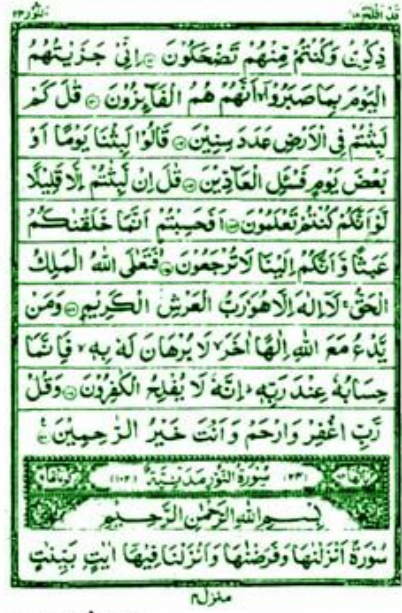 قد افلح ١٨
النور ٢٤
ذِكْرِىْ وَكُنْتُمْ مِّنْهُمْ تَضْحَكُوْنَ ۝ اِنِّىْ جَزَيْتُهُمُ
الْيَوْمَ بِمَا صَبَرُوْٓا ۙ اَنَّهُمْ هُمُ الْفَآئِزُوْنَ ۝ قٰلَ كَمْ
لَبِثْتُمْ فِى الْاَرْضِ عَدَدَ سِنِيْنَ ۝ قَالُوْا لَبِثْنَا يَوْمًا اَوْ
بَعْضَ يَوْمٍ فَسْئَلِ الْعَآدِّيْنَ ۝ قٰلَ اِنْ لَّبِثْتُمْ اِلَّا قَلِيْلًا
لَّوْ اَنَّكُمْ كُنْتُمْ تَعْلَمُوْنَ ۝ اَفَحَسِبْتُمْ اَنَّمَا خَلَقْنٰكُمْ
عَبَثًا وَّ اَنَّكُمْ اِلَيْنَا لَا تُرْجَعُوْنَ ۝ فَتَعٰلَى اللّٰهُ الْمَلِكُ
الْحَقُّ ۚ لَآ اِلٰهَ اِلَّا هُوَ ۚ رَبُّ الْعَرْشِ الْكَرِيْمِ ۝ وَمَنْ
يَّدْعُ مَعَ اللّٰهِ اِلٰهًا اٰخَرَ ۙ لَا بُرْهَانَ لَهٗ بِهٖ ۙ فَاِنَّمَا
حِسَابُهٗ عِنْدَ رَبِّهٖ ؕ اِنَّهٗ لَا يُفْلِحُ الْكٰفِرُوْنَ ۝ وَقُلْ
رَّبِّ اغْفِرْ وَارْحَمْ وَاَنْتَ خَيْرُ الرّٰحِمِيْنَ ۝
(٢٤) سُوْرَةُ النُّوْرِ مَدَنِيَّةٌ (١٠٢)
بِسْمِ اللّٰهِ الرَّحْمٰنِ الرَّحِيْمِ
سُوْرَةٌ اَنْزَلْنٰهَا وَفَرَضْنٰهَا وَاَنْزَلْنَا فِيْهَآ اٰيٰتٍۢ بَيِّنٰتٍ
منزل ٤